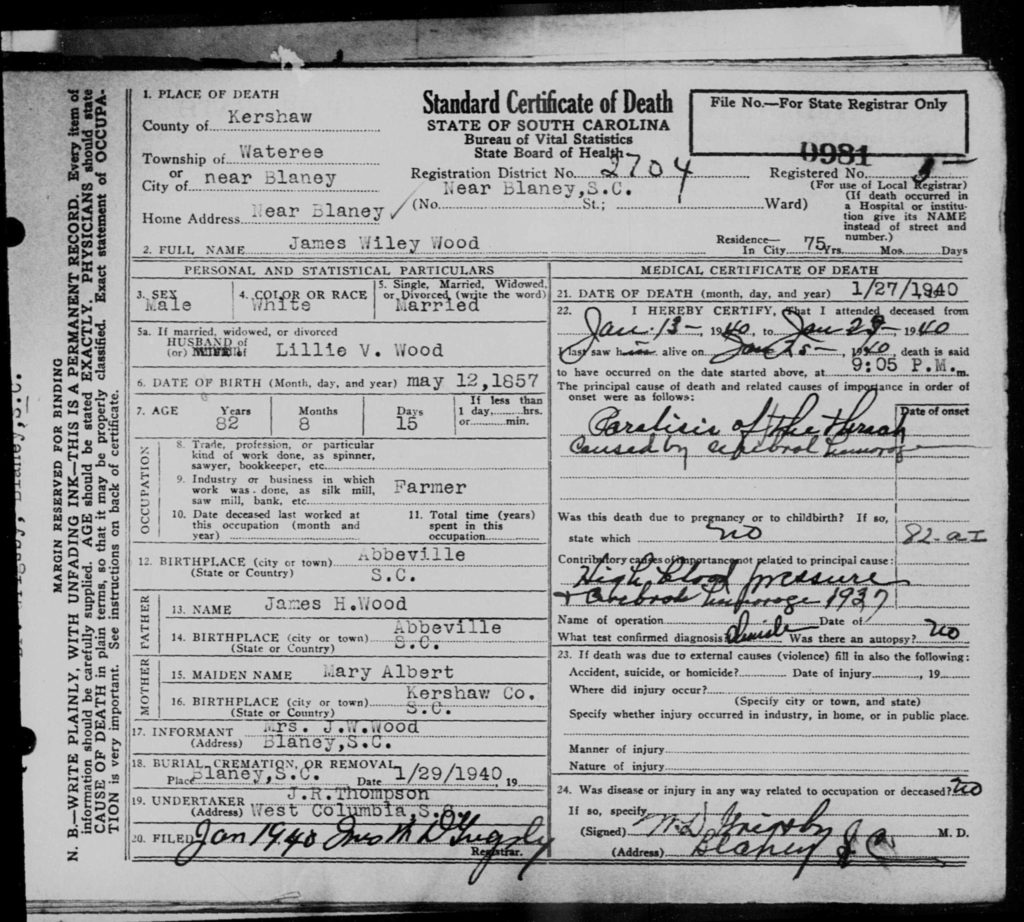 1. PLACE OF DEATH
County of Kershaw
Township of Wateree
or
City of near Blaney
Home Address Near Blaney
Standard Certificate of Death
STATE OF SOUTH CAROLINA
Bureau of Vital Statistics
State Board of Health
File No.—For State Registrar Only
0981
Registration District No. 2704
Registered No.
(For use of Local Registrar)
Near Blaney, S.C.
(No. St.; Ward)
(If death occurred in
a Hospital or institu-
tion give its NAME
instead of street and
number.)
2. FULL NAME James Wiley Wood
Residence—
In City 75 Yrs. Mos. Days
PERSONAL AND STATISTICAL PARTICULARS
3. SEX
Male
4. COLOR OR RACE
White
5. Single, Married, Widowed,
or Divorced (write the word)
Married
5a. If married, widowed, or divorced
HUSBAND of
(or) WIFE of Lillie V. Wood
6. DATE OF BIRTH (Month, day, and year) may 12,1857
7. AGE Years Months Days If less than
1 day, hrs.
82 8 15 or min.
OCCUPATION
8. Trade, profession, or particular
kind of work done, as spinner,
sawyer, bookkeeper, etc.
9. Industry or business in which
work was done, as silk mill,
saw mill, bank, etc. Farmer
10. Date deceased last worked at
this occupation (month and
year)
11. Total time (years)
spent in this
occupation
12. BIRTHPLACE (city or town) Abbeville
(State or Country) S.C.
FATHER
13. NAME James H.Wood
14. BIRTHPLACE (city or town) Abbeville
(State or Country) S.C.
MOTHER
15. MAIDEN NAME Mary Albert
16. BIRTHPLACE (city or town) Kershaw Co.
(State or Country) S.C.
17. INFORMANT Mrs. J.W.Wood
(Address) Blaney,S.C.
18. BURIAL, CREMATION, OR REMOVAL
Place Blaney,S.C. Date 1/29/1940, 19
19. UNDERTAKER J.R.Thompson
(Address) West Columbia,S.C.
20. FILED Jan 1940
Registrar.
MEDICAL CERTIFICATE OF DEATH
21. DATE OF DEATH (month, day, and year) 1/27/1940
22. I HEREBY CERTIFY, That I attended deceased from
Jan. 13 — 1940, to Jan 1940
I last saw him alive on Jan 25 — 1940, death is said
to have occurred on the date started above, at 9:05 P.M. m.
The principal cause of death and related causes of importance in order of
onset were as follows:
Date of onset
Paralisis of the
caused by cerebral
Was this death due to pregnancy or to childbirth? If so,
state which no
82-a-I
Contributory causes of importance not related to principal cause:
High blood pressure
1937
Name of operation Date of
What test confirmed diagnosis? Was there an autopsy? no
23. If death was due to external causes (violence) fill in also the following:
Accident, suicide, or homicide? Date of injury , 19
Where did injury occur?
(Specify city or town, and state)
Specify whether injury occurred in industry, in home, or in public place.
Manner of injury
Nature of injury
24. Was disease or injury in any way related to occupation or deceased? no
If so, specify
(Signed) W. D. Grigsby M. D.
(Address) Blaney S C
MARGIN RESERVED FOR BINDING
N. B.—WRITE PLAINLY, WITH UNFADING INK—THIS IS A PERMANENT RECORD. Every item of
information should be carefully supplied. AGE should be stated EXACTLY. PHYSICIANS should state
CAUSE OF DEATH in plain terms, so that it may be properly classified. Exact statement of OCCUPA-
TION is very important. See instructions on back of certificate.